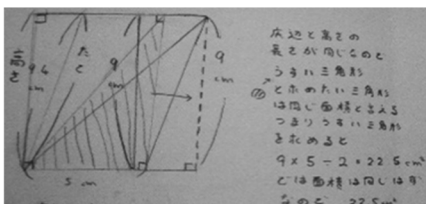 高さ
9cm
たて
9
cm
9
cm
5cm
底辺と高さの
長さが同じなので
うすい三角形
は同じ面積と言える
つまりうすい三角形
を求めると
9×5÷2=22.5cm²
では面積は同じはず
なので 22.5cm²